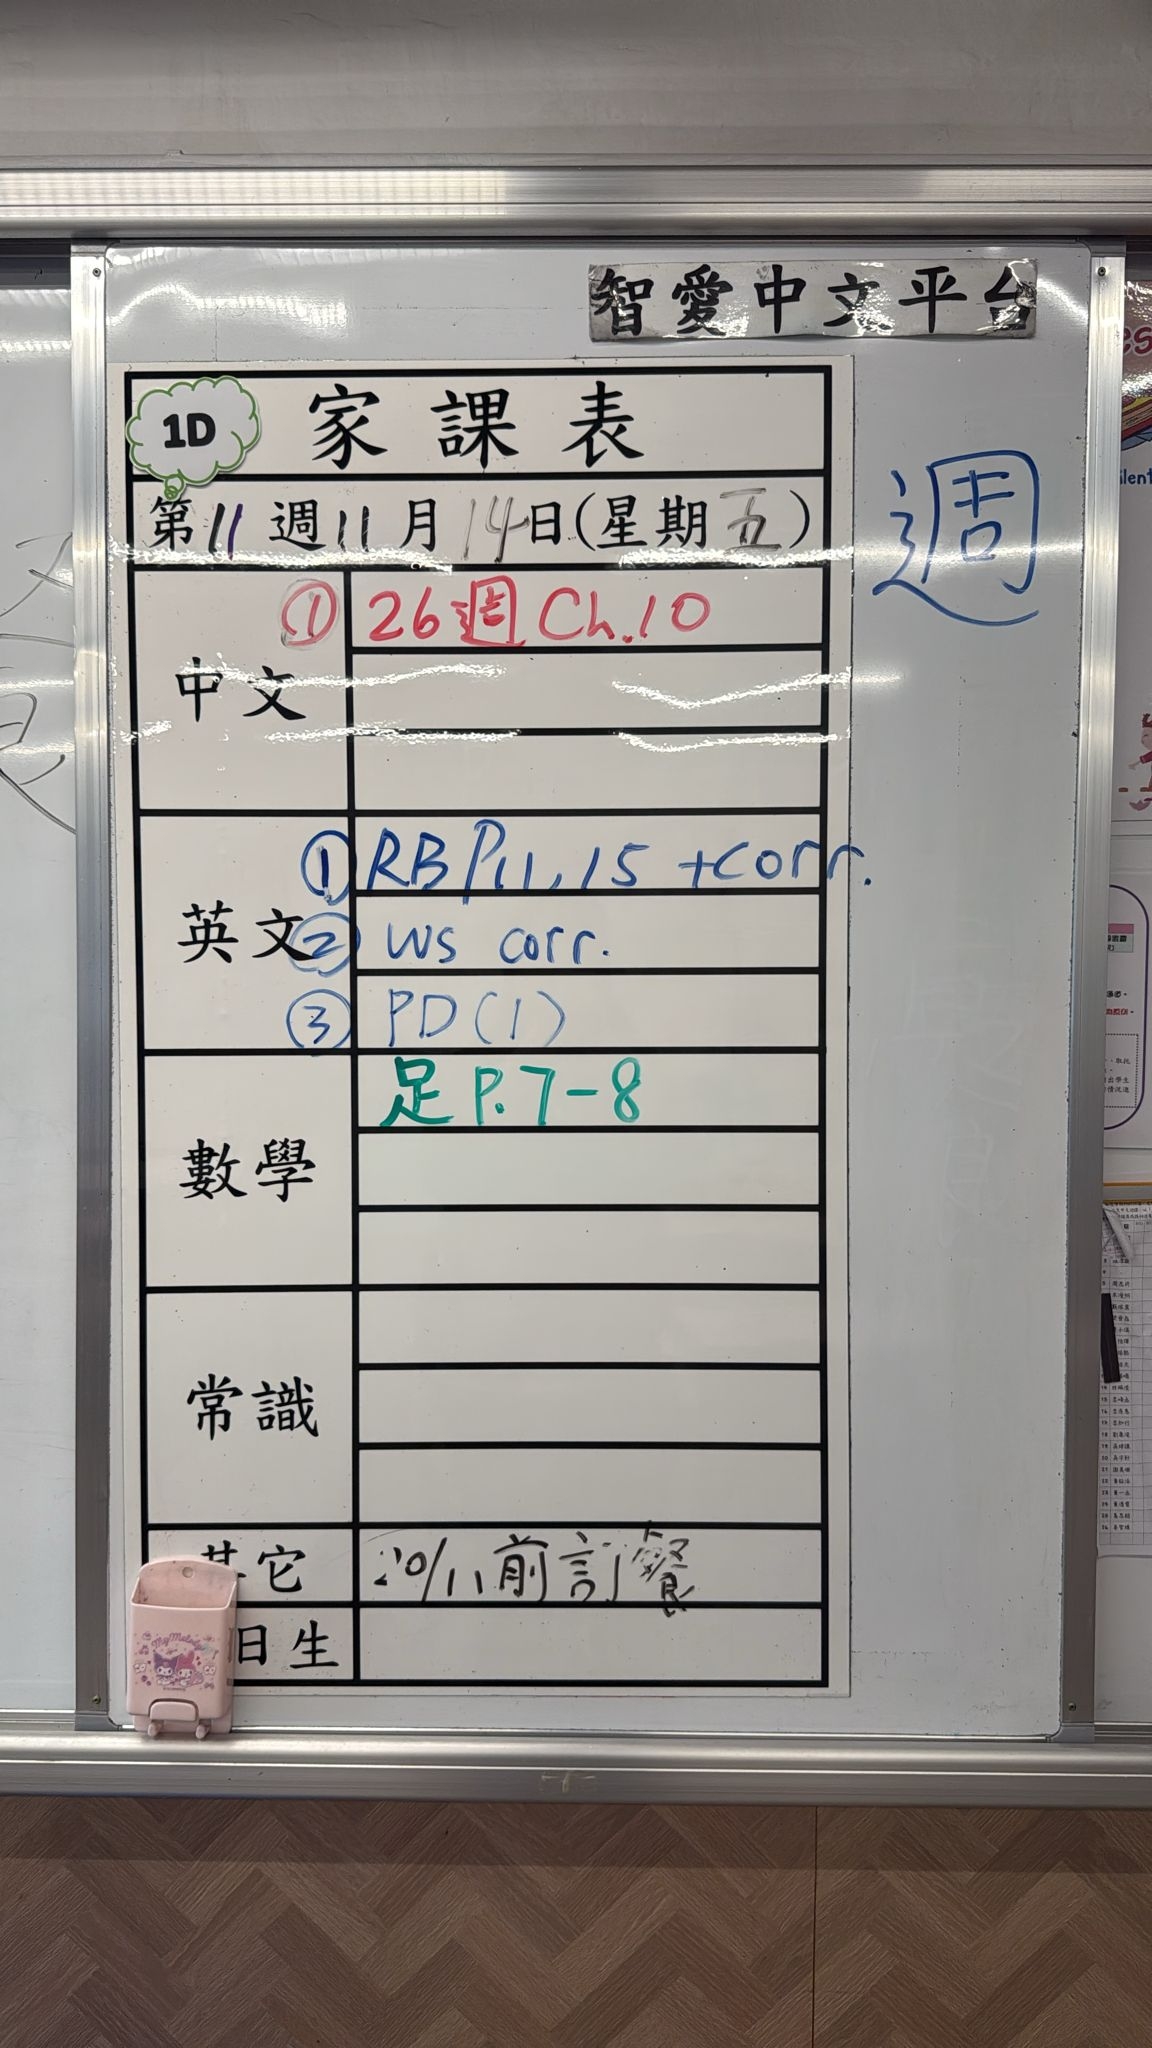 智愛中文平台
1D
家課表
第11週11月14日(星期五)
週
中文
① 26週 Ch.10
英文
① RB P.11, 15 +corr.
② WS corr.
③ PD(1)
數學
足 P.7-8
常識
其它
20/11前訂餐
日生
My Melody